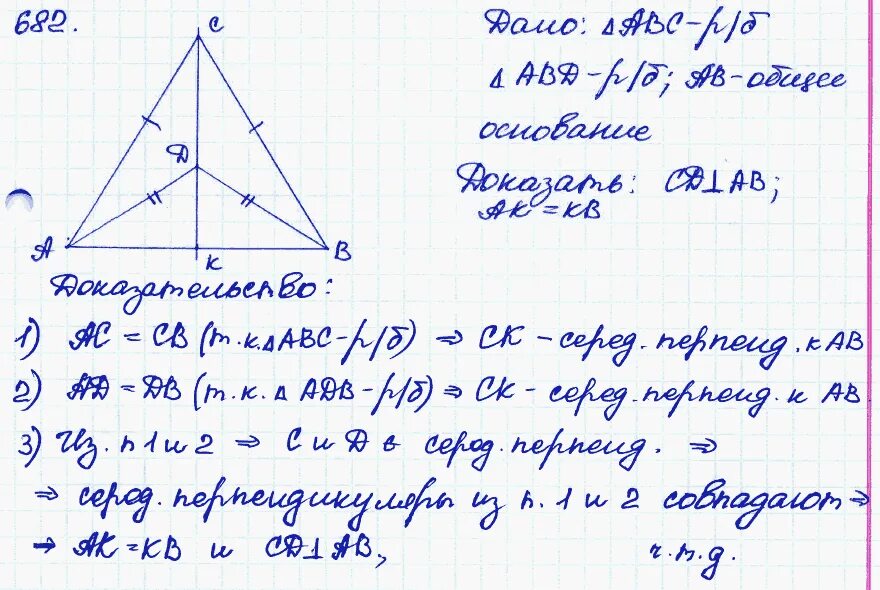 682.
C
D
A
K
B
Дано: △ABC-р/б
△ABD-р/б; AB-общее
основание
Доказать: CD⊥AB;
AK=KB
Доказательство:
1) AC = CB (т.к.△ABC-р/б) ⇒ CK - серед.перпенд.к AB
2) AD = DB (т.к.△ ADB-р/б) ⇒ CK - серед.перпенд.к AB
3) Из.п 1 и 2 ⇒ C и D ∈ серед.перпенд. ⇒
⇒ серед.перпендикуляры из п.1 и 2 совпадают ⇒
→ AK=KB и CD⊥AB, ч.т.д.